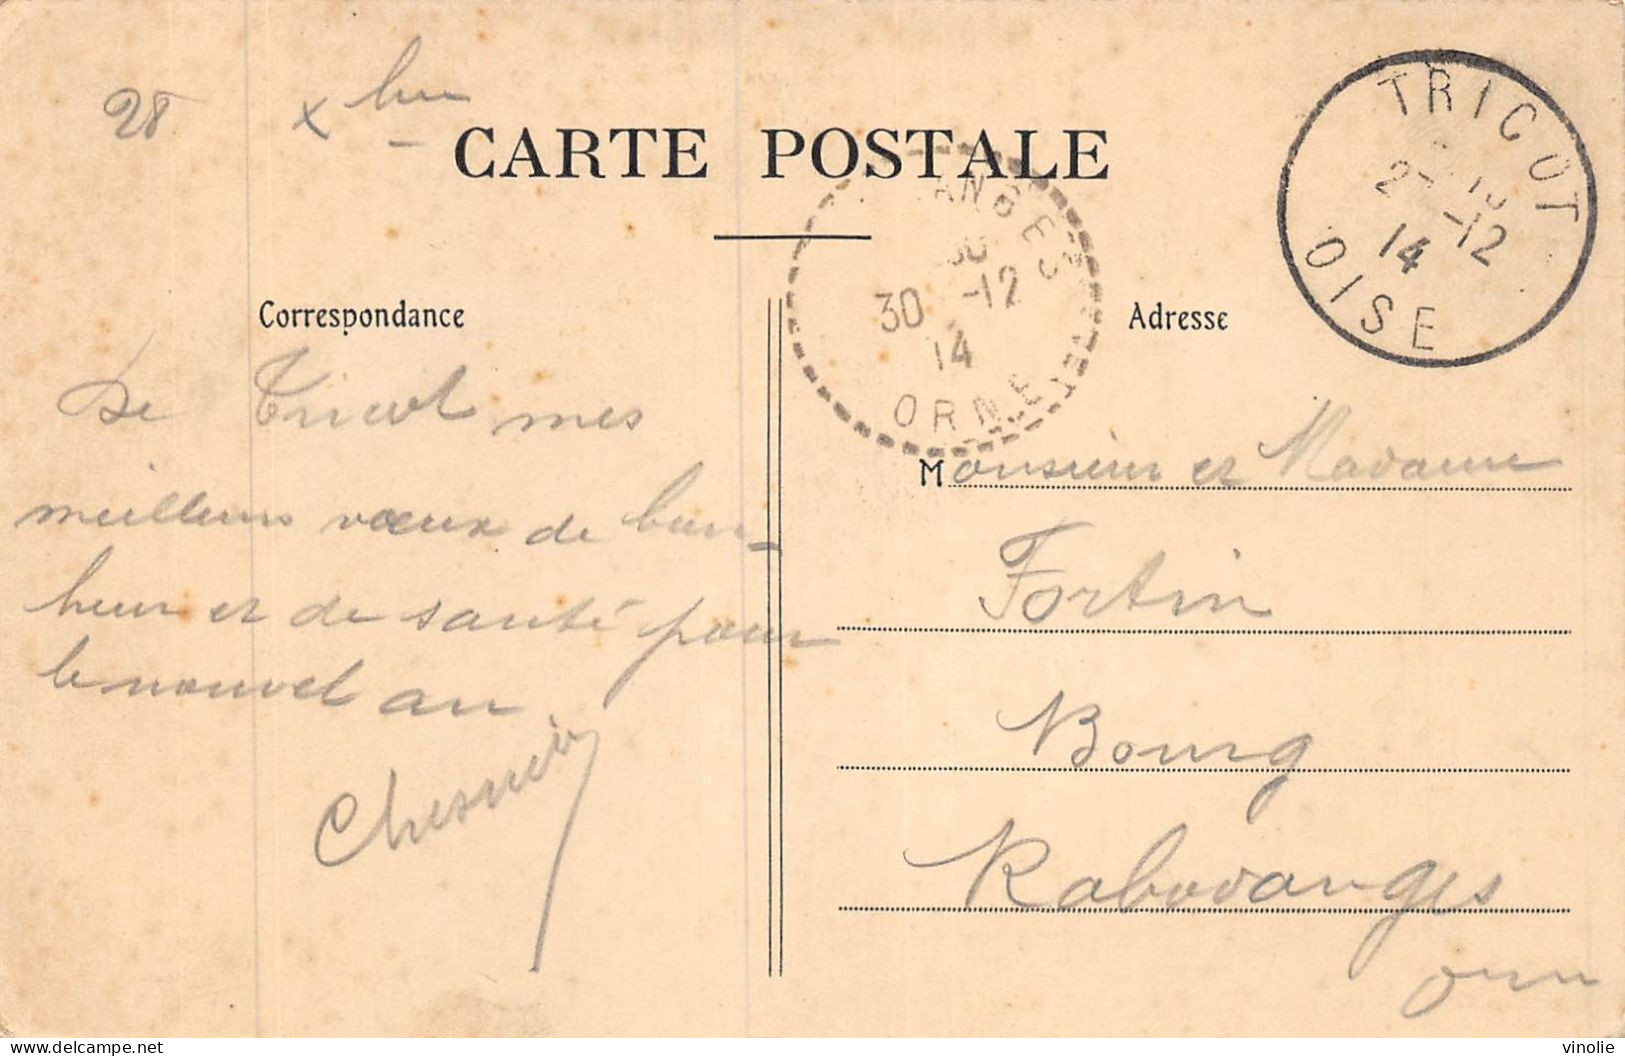 28
CARTE POSTALE
TRICOT
2
-12
14
OISE
ANGES
30 -12
14
ORNE
Correspondance
Adresse
De Tricot mes
meilleurs vœux de bon-
heur et de santé pour
le nouvel an
Monsieur et Madame
Fortin
Bourg
Rabodanges
Orne
delcampe.net
vinolie